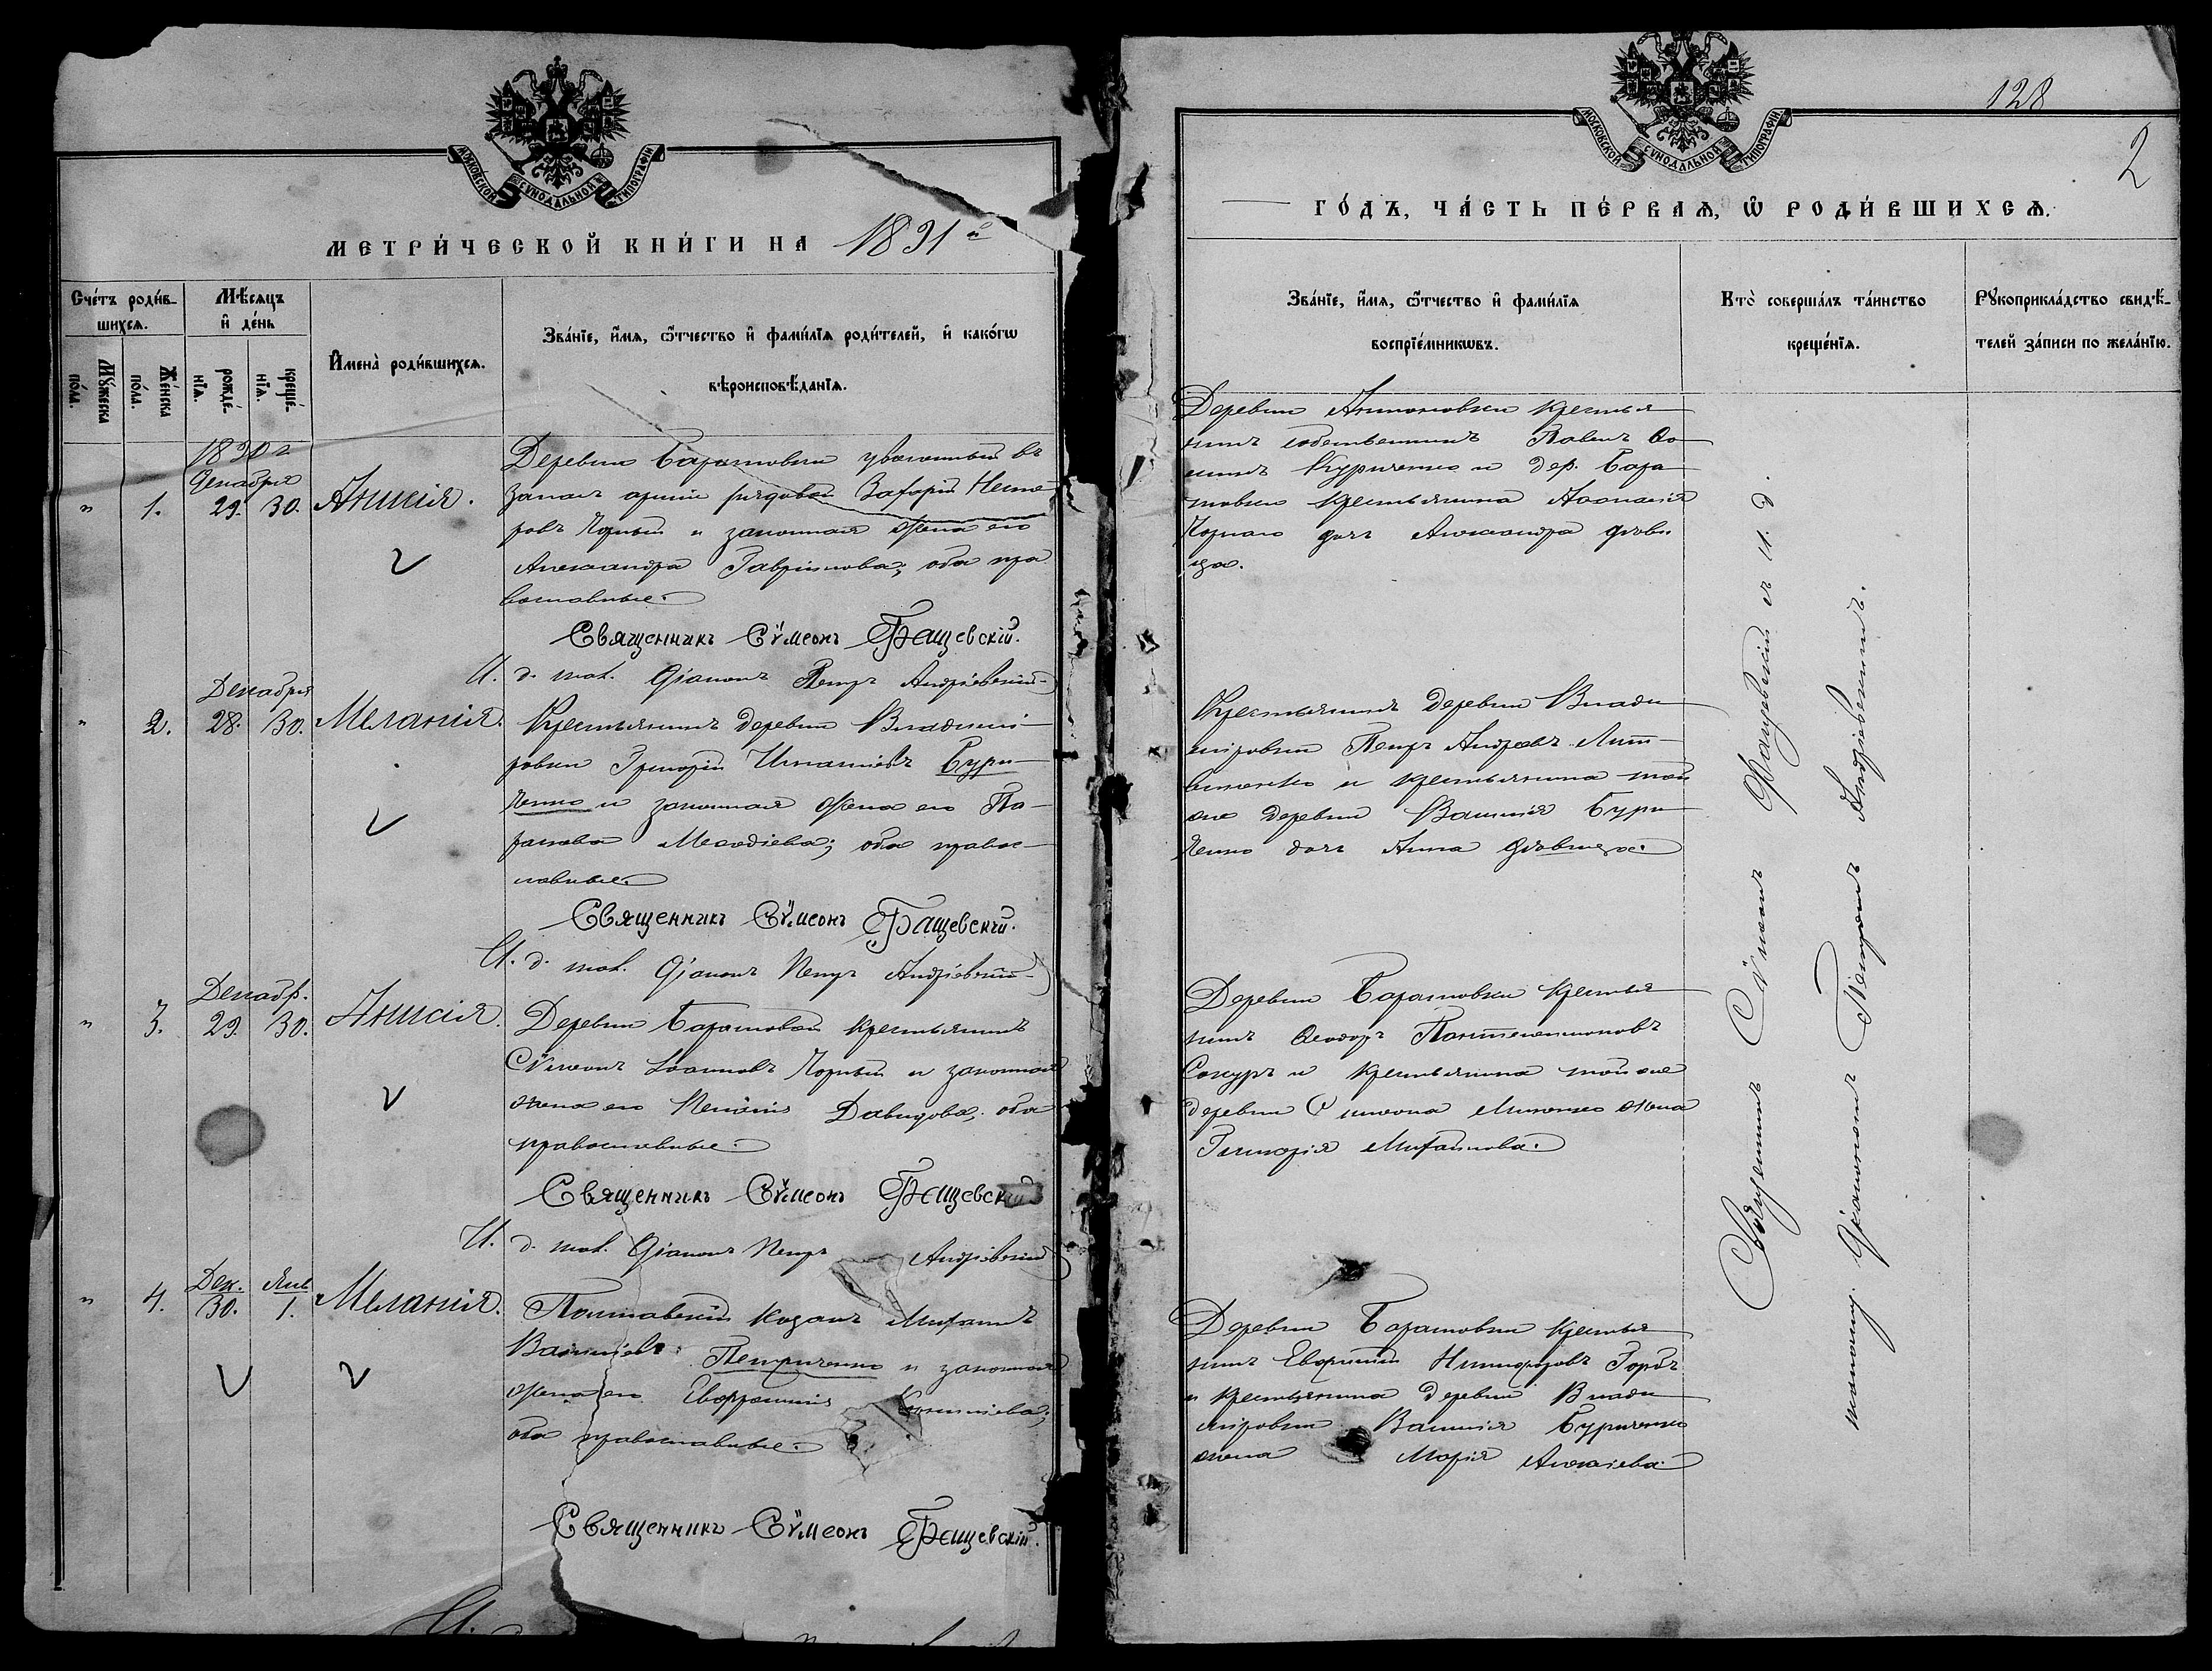 МОСКОВСКОЙ СѴНОДАЛЬНОЙ ТИПОГРАФІИ
МЕТРИ́ЧЕСКОЙ КНИ́ГИ НА 1891й
Сче́тъ роди́в-
шихсѧ.
Мѣ́сѧцъ
и҆ де́нь
Мꙋ́жеска
по́ла.
Же́нска
по́ла.
рожде́-
нїѧ.
креще́-
нїѧ.
И҆мена̀ роди́вшихсѧ.
Зва́нїе, и҆́мѧ, ѻ҆́тчество и҆ фами́лїѧ роди́телей, и҆ како́гѡ
вѣроисповѣ́данїѧ.
1890 г
Декабря
" 1. 29. 30. Анисія.
Деревни Баратовки уволенный въ
запас арміи рядовой Захарій Несто-
ровъ Чорный и законная жена его
Александра Гавріилова; оба пра
вославные.
Священникъ Сѵмеонъ Фащевскій.
И. д. псал. Діаконъ Петръ Андріевскій
Декабря
" 2. 28. 30. Меланія.
Крестьянинъ деревни Владимі-
ровки Григорій Игнатіевъ Бури-
ченко и законная жена его Па-
раскева Меѳодіева; оба правос-
лавные.
Священникъ Сѵмеонъ Фащевскій.
И. д. псал. Діаконъ Петръ Андріевскій
Декабр.
" 3. 29. 30. Анисія.
Деревни Баратовки крестьянинъ
Сѵмеонъ Іоанновъ Чорный и законная
жена его Ксенія Давидова; оба
православные.
Священникъ Сѵмеонъ Фащевскій
И. д. псал. Діаконъ Петръ Андріевскій
Дек. Янв.
" 4. 30. 1. Меланія.
Полтавскій козакъ Михаилъ
Василіевъ Петриченко и законная
жена его Евфросинія
оба православные.
Священникъ Сѵмеонъ Фащевскій.
И.
128
2
МОСКОВСКОЙ СѴНОДАЛЬНОЙ ТИПОГРАФІИ
ГО́ДЪ, ЧА́СТЬ ПЕ́РВАѦ, Ѡ҆ РОДИ́ВШИХСѦ.
Зва́нїе, и҆́мѧ, ѻ҆́тчество и҆ фами́лїѧ
воспрїе́мникѡвъ.
Кто̀ соверша́лъ та́инство
креще́нїѧ.
Рꙋкоприкла́дство свидѣ́-
телей за́писи по жела́нїю.
Деревни Антоновки крестья
нинъ собственникъ Павелъ Ѳо
минъ Куриченко и дер. Бара
товки крестьянина Аѳанасія
Чорнаго дочь Александра дѣви
ца.
Крестьянинъ деревни Влади
міровки Петръ Андреевъ Лит-
виненко и крестьянина той
же деревни Василія Бури
ченко дочь Анна дѣвица.
Деревни Баратовки крестья
нинъ Ѳеодоръ Пантелеимоновъ
Сокуръ и крестьянина той же
деревни Симеона жена
Гликерія Михаилова.
Деревни Баратовки крестья
нинъ Никифоровъ Горбъ
и крестьянина деревни Влади
міровки Василія Буриченко
жена Марія Алексіева.
Священникъ Сѵмеонъ Фащевскій съ И. д.
псаломщ. Діакономъ Петромъ Андріевскимъ.